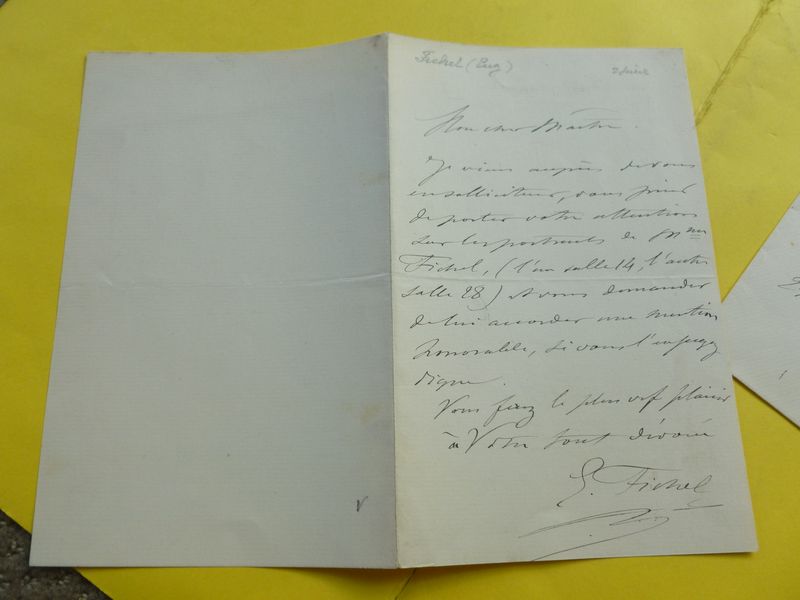 Fichel (Eug)
Mon cher Maître.
Je viens auprès de vous
en solliciteur, vous prier
de porter votre attention
sur les portraits de Mme
Fichel, (l'un salle 14, l'autre
salle 28) et vous demander
de lui accorder une mention
honorable, si vous l'en jugez
digne.
Vous ferez le plus vif plaisir
à Votre tout dévoué
E. Fichel